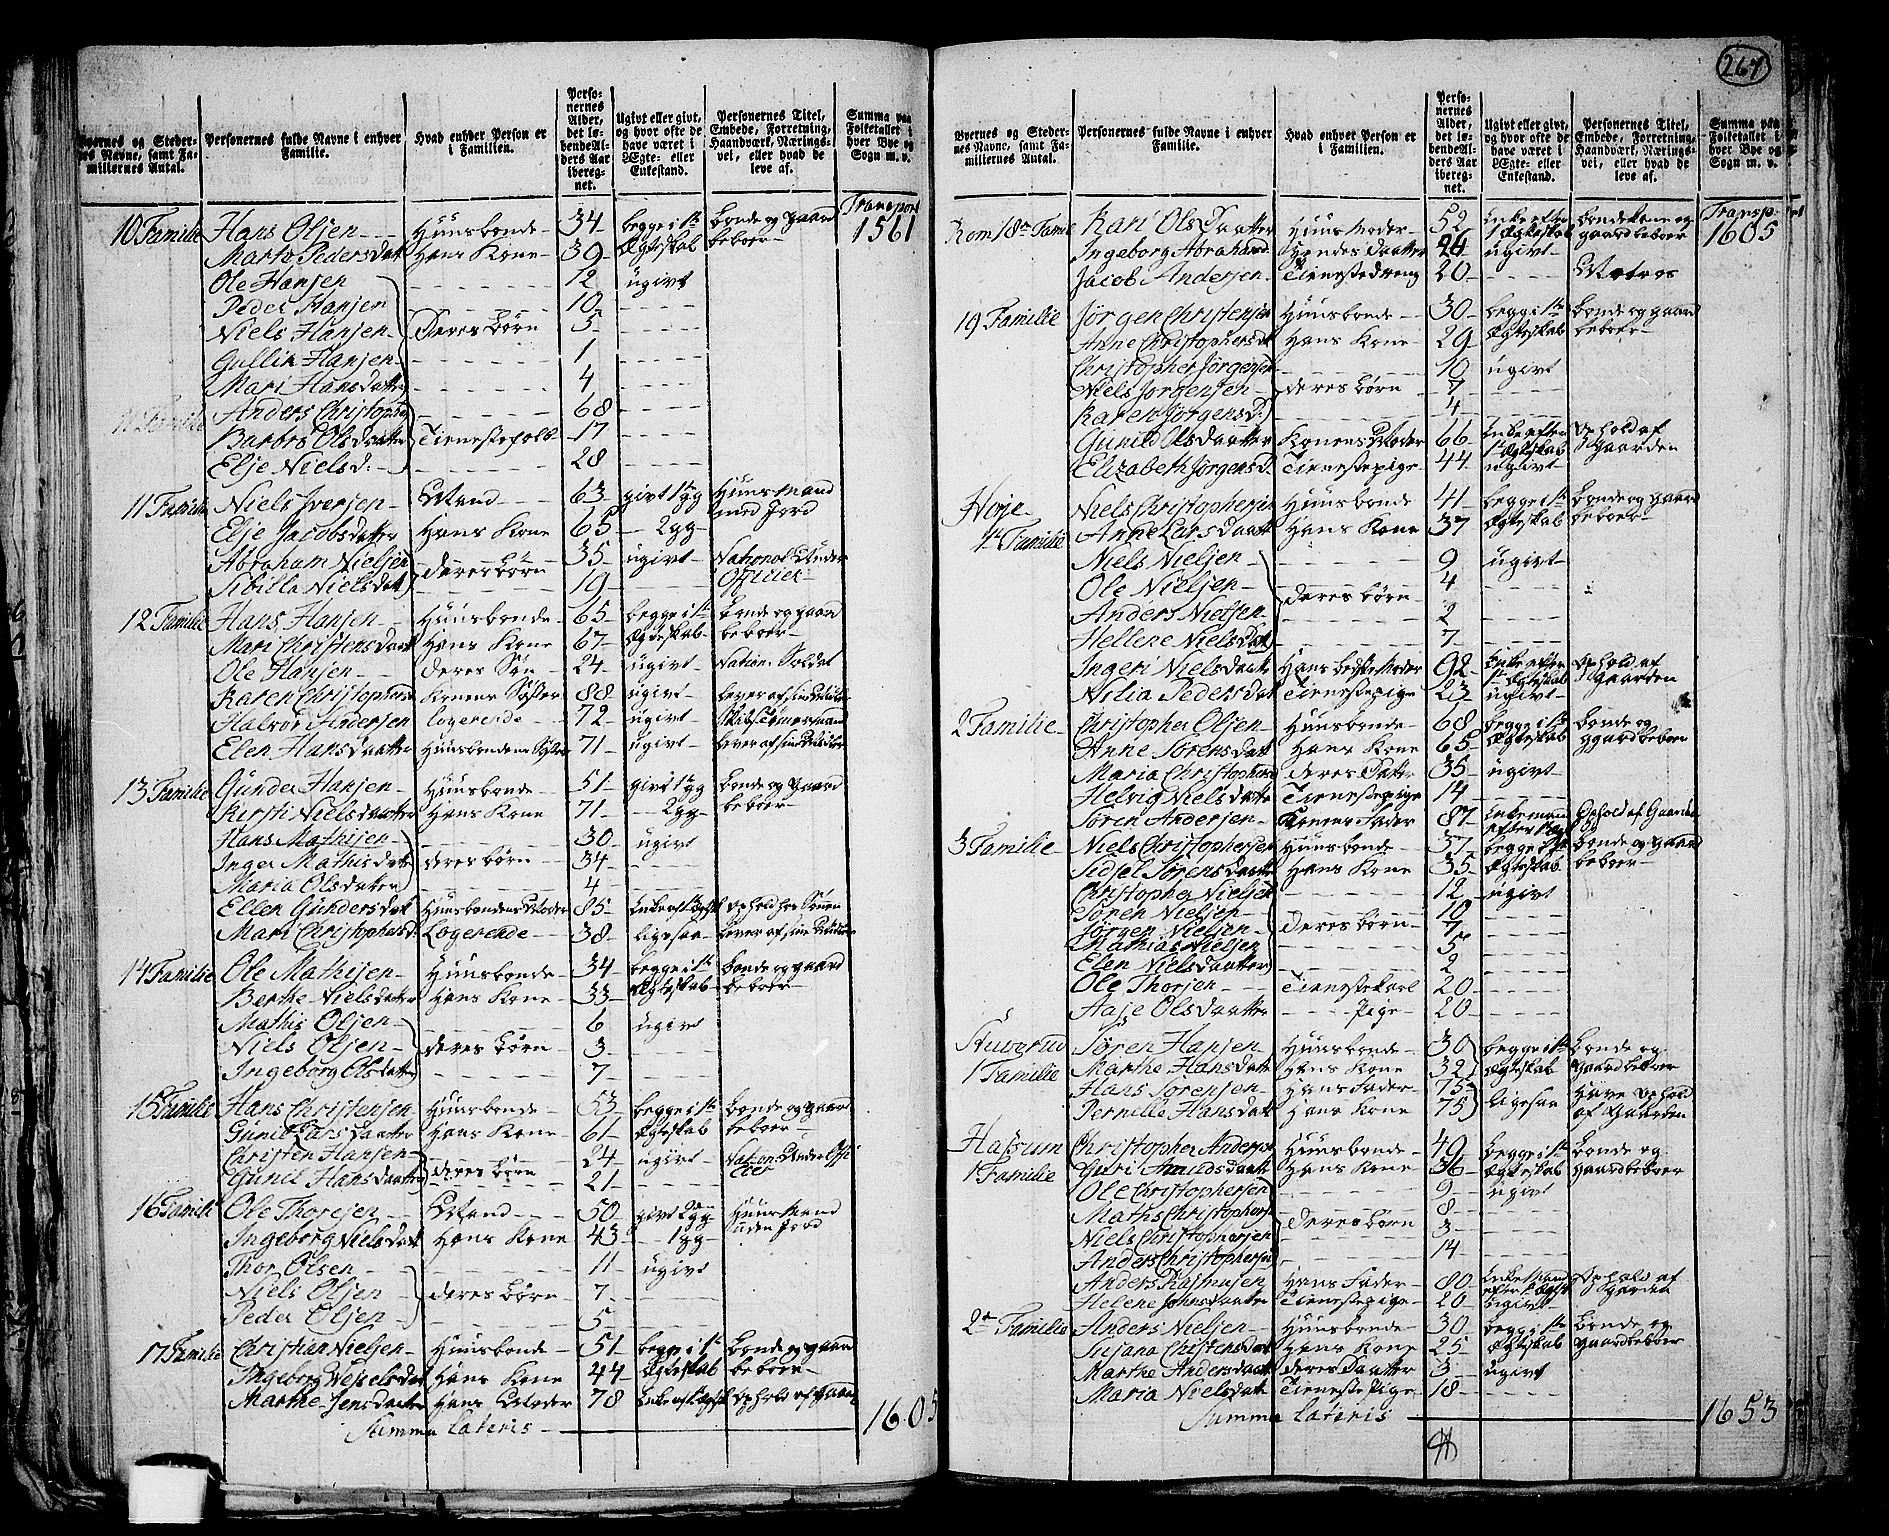 Byernes og Steder-
nes Navne, samt Fa-
milliernes Antal.
Personernes fulde Navne i enhver
Familie.
Hvad enhver Person er
i Familien.
Perso-
nernes
Alder,
det lø-
bende Al-
ders Aar
iberreg-
net.
Ugivt eller givt,
og hvor ofte de
have været i
Ægte- eller
Enkestand.
Personernes Titel,
Embede, Forretning,
Haandværk, Nærings-
vei, eller hvad de
leve af.
Summa paa
Folketallet i
hver Bye og
Sogn m. v.
Transport
1561
10 Familie Hans Olsen Huusbonde 34 begge i 1te bonde og gaard
Marte Pedersdat Hans Kone 39 Ægteskab beboer
Ole Hansen 12 ugivt
Peder Hansen 10
Niels Hansen Deres børn 5
Gullik Hansen 1
Mari Hansdatter 4
Anders Christopher 68
Barbro Olsdaatter Tienestefolk 17
Elje Nielsd: 28
11 Familie Niels Iversen Mand 63 givt 1 gg Huusmand
med Jord
Elje Jacobsdatter Hans Kone 65 2 gg
Abraham Nielsen deres børn 35 ugivt National Under
Officier
Sibilla Nielsdat 19
12 Familie Hans Hansen Huusbonde 65 begge i 1te bonde og gaard
Mari Christensdaat Hans Kone 67 Ægteskab beboer
Ole Hansen deres Søn 24 ugivt Nation: Soldat
Karen Christophersd Konens Søster 88 ugivt lever af sine Midler
Halvor Andersen Logerende 72 ugivt Skibstømmermand
Elen Hansdaatter Huusbondens Søster 71 ugivt lever af sine Midler
13 Familie Gunder Hansen Huusbonde 51 givt 1 gg bonde og gaard
Kirsti Nielsdaatter Hans Kone 71 2 gg beboer
Hans Mathisen 30 ugivt
Inger Mathisdatter deres børn 34
Maria Olsdatter 4
Ellen Gundersdat Huusbondens Moder 85 Enke af 1 Ægtesk ophold hos Sønen
Mari Christophersd Logerende 38 ligesaa lever af sine Midler
14 Familie Ole Mathisen Huusbonde 34 begge i 1te bonde og gaard
Berthe Nielsdatter Hans Kone 33 Ægteskab beboer
Mathis Olsen 6 ugivt
Niels Olsen deres børn 3
Ingeborg Olsdatter 7
15 Familie Hans Christensen Huusbonde 53 begge i 1te bonde og gaard
Gunil Larsdaatter Hans Kone 61 Ægteskab beboer
Christen Hansen 24 ugivt Nation: Under Offi
cier
Gunil Hansdaatter deres børn 21
16 Famili Ole Thoresen Mand 50 givt 2 gg Huusmand
Ingeborg Nielsdat Hans Kone 43 1 gg uden Jord
Thor Olsen 11 ugivt
Niels Olsen deres børn 7
Peder Olsen 5
17 Familie Christian Nielsen Huusbonde 51 begge i 1te bonde og gaard
Ingeborg Wesselsdat Hans Kone 44 Ægteskab beboer
Marthe Jensdaatter Hans Moder 78 Enke af 1 Ægtesk ophold af gaard
Summa Lateris 1605
267
Byernes og Steder-
nes Navne, samt Fa-
milliernes Antal.
Personernes fulde Navne i enhver
Familie.
Hvad enhver Person er
i Familien.
Perso-
nernes
Alder,
det lø-
bende Al-
ders Aar
iberreg-
net.
Ugivt eller givt,
og hvor ofte de
have været i
Ægte- eller
Enkestand.
Personernes Titel,
Embede, Forretning,
Haandværk, Nærings-
vei, eller hvad de
leve af.
Summa paa
Folketallet i
hver Bye og
Sogn m. v.
Transport
1605
Rom 18de Famil Kari Olsdaatter Huusmoder 52 Enke efter bondekone og
1 Ægteskab gaardbeboer
Ingeborg Abrahamsd Hendes Daatter 24 ugivt
Jacob Andersen Tienestedreng 20 Matros
19 Familie Jørgen Christensen Huusbonde 30 begge i 1te bonde og gaard
Anne Christophersdat Hans Kone 29 Ægteskab beboer
Christopher Jørgensen 10 ugivt
Niels Jørgensen deres børn 7
Karen Jørgensd: 4
Gunild Olsdaatter Konens Moder 66 Enke efter Ophold af
1te Ægteskab Gaarden
Elizabeth Jørgensd. Tienestepige 44 ugivt
Høje
1te Familie Niels Christophersen Huusbonde 41 begge i 1te bonde og gaard
Anne Larsdaatt Hans Kone 37 Ægteskab beboer
Niels Nielsen 9 ugivt
Ole Nielsen 4
Anders Nielsen deres børn 2
Hellene Nielsdat 7
Ingeri Nielsdaatt Hans bedste Moder 92 Enke efter Ophold af
1te Ægteskab Gaarden
Nilia Pedersdat Tienestepige 23 ugivt
2 Familie Christopher Olsen Huusbonde 68 begge i 1te bonde og
Anne Sørensdatt Hans Kone 65 Ægteskab gaardbeboer
Maria Christophersd deres Datter 35 ugivt
Helvig Nielsdatter Tienestepige 14
Søren Andersen Konens Fader 87 Enkemand Ophold af Gaarden
3 Familie Niels Christophersen Huusbonde 37 begge i 1te bonde og gaard
Sidsel Sørensdaatter Hans Kone 35 Ægteskab beboer
Christopher Nielsen 12 ugivt
Søren Nielsen 10
Jørgen Nielsen deres børn 7
Mathias Nielsen 5
Elen Nielsdaatter 2
Ole Thorsen Tienestekarl 20
Aase Olsdaatter Pige 20
Stuverud Søren Hansen Huusbonde 30 begge i 1te bonde og
1 Familie Marthe Hansdatt Hans Kone 32 Ægteskab gaardbeboer
Hans Sørensen Hans Fader 75 ligesaa Have Ophold
Pernille Hansdatt Hans Kone 75 af Gaarden
Hassum Christopher Anderss Huusbonde 49 begge i 1te bonde og
1 Familie Guri Amundsdaatt Hans Kone 36 Ægteskab gaardbeboer
Ole Christophersen 9 ugivt
Maths Christophers 8
Niels Christophersen deres børn 3
Anders Christophersen 14
Anders Rasmusen Hans Fader 80 Enkemand Ophold af
efter 1te Ægtsk Gaarden
Helene Johnsdaatter Tienestepige 20 ugivt
2de Familie Anders Nielsen Huusbonde 30 begge i 1te bonde og
Susana Christensdat Hans Kone 25 Ægteskab gaardbeboer
Marthe Andersdaatt deres Daatter 3 ugivt
Maria Nielsdatt Tienestepige 18
Summa Lateris 1653